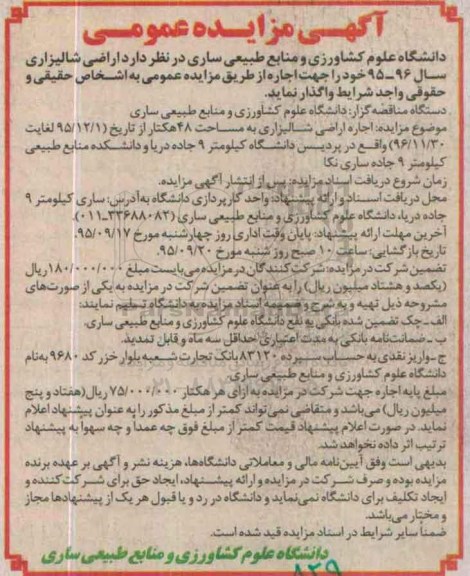 آگهی مزایده عمومی
دانشگاه علوم کشاورزی و منابع طبیعی ساری در نظر دارد اراضی شالیزاری
سال ۹۶-۹۵ خود را جهت اجاره از طریق مزایده عمومی به اشخاص حقیقی و
حقوقی واجد شرایط واگذار نماید.
دستگاه مناقصه گزار: دانشگاه علوم کشاورزی و منابع طبیعی ساری
موضوع مزایده: اجاره اراضی شالیزاری به مساحت ۴۸هکتار از تاریخ (۹۵/۱۲/۱ لغایت
۹۶/۱۱/۳۰) واقع در پردیس دانشگاه کیلومتر ۹ جاده دریا و دانشکده منابع طبیعی
کیلومتر ۹ جاده ساری نکا
زمان شروع دریافت اسناد مزایده: پس از انتشار آگهی مزایده.
محل دریافت اسناد و ارائه پیشنهاد: واحد کارپردازی دانشگاه به آدرس: ساری کیلومتر ۹
جاده دریا، دانشگاه علوم کشاورزی و منابع طبیعی ساری (۳۳۶۸۸۰۸۲-۰۱۱).
آخرین مهلت ارائه پیشنهاد: پایان وقت اداری روز چهارشنبه مورخ ۹۵/۰۹/۱۷.
تاریخ بازگشایی: ساعت ۱۰ صبح روز شنبه مورخ ۹۵/۰۹/۲۰.
تضمین شرکت در مزایده: شرکت کنندگان در مزایده می‌بایست مبلغ ۱۸۰/۰۰۰/۰۰۰ریال
(یکصد و هشتاد میلیون ریال) را به عنوان تضمین شرکت در مزایده به یکی از صورت‌های
مشروحه ذیل تهیه و به شرح و ضمیمه اسناد مزایده به دانشگاه تسلیم نمایند:
الف ـ چک تضمین شده بانکی به نفع دانشگاه علوم کشاورزی و منابع طبیعی ساری.
ب ـ ضمانت‌نامه بانکی به مدت اعتباری حداقل سه ماه و قابل تمدید.
ج ـ واریز نقدی به حساب سپرده ۸۳۱۲۰ بانک تجارت شعبه بلوار خزر کد ۹۶۸۰ به نام
دانشگاه علوم کشاورزی و منابع طبیعی ساری.
مبلغ پایه اجاره جهت شرکت در مزایده به ازای هر هکتار ۷۵/۰۰۰/۰۰۰ ریال(هفتاد و پنج
میلیون ریال) می‌باشد و متقاضی نمی‌تواند کمتر از مبلغ مذکور را به عنوان پیشنهاد اعلام
نماید. در صورت اعلام پیشنهاد قیمت کمتر از مبلغ فوق چه عمداً و چه سهوا به پیشنهاد
ترتیب اثر داده نخواهد شد.
بدیهی است وفق آیین‌نامه مالی و معاملاتی دانشگاه‌ها، هزینه نشر و آگهی بر عهده برنده
مزایده بوده و صرف شرکت در مزایده و ارائه پیشنهاد، ایجاد حق برای شرکت کننده و
ایجاد تکلیف برای دانشگاه نمی‌نماید و دانشگاه در رد و یا قبول هر یک از پیشنهادها مجاز
و مختار می‌باشد.
ضمناً سایر شرایط در اسناد مزایده قید شده است.
دانشگاه علوم کشاورزی و منابع طبیعی ساری
۸۲۹